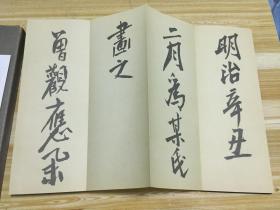 明治辛丑
二月爲某氏
畫之
曾觀應